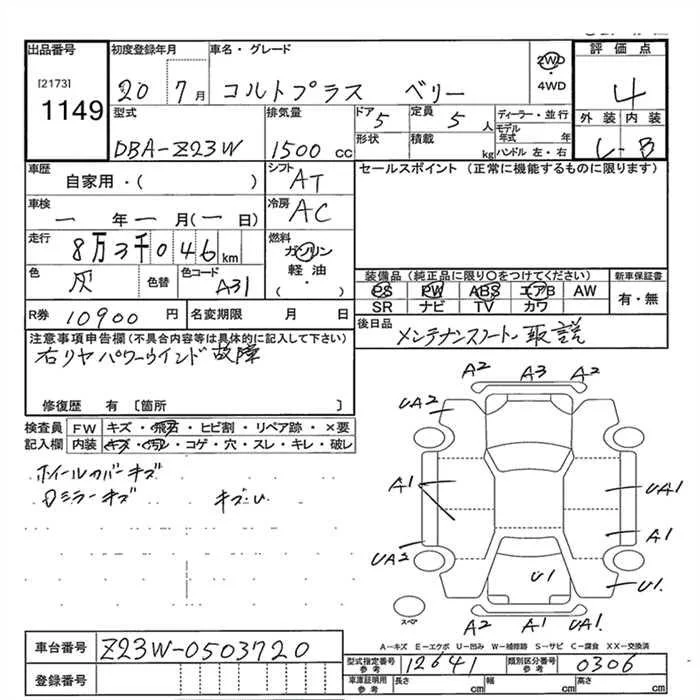 出品番号 初度登録年月 車名・グレード 評価点
[2173] 1149 20 7月 コルトプラス ベリー 2WD 4WD 4
型式 排気量 ドア 5 定員 5人 ディーラー・並行 外装 内装
DBA-Z23W 1500cc 形状 積載 kg モデル年式 年 ハンドル 左・右 B
車歴 自家用・( ) シフト AT セールスポイント (正常に機能するものに限ります)
車検 一年一月(一日) 冷房 AC
走行 8万3千046km 燃料 ガソリン 軽油・( )
色 灰 色替 色コード A31 装備品 (純正品に限り○をつけてください) 新車保証書
PS PW ABS エアB AW 有・無
SR ナビ TV カワ
R券 10900円 名変期限 月 日 後日品 メンテナンスノート・取説
注意事項申告欄(不具合内容等は具体的に記入して下さい)
右リヤパワーウインド故障
修復歴 有 [箇所 ]
検査員記入欄 FW キズ・飛石・ヒビ割・リペア跡・×要
内装 キズ・汚れ・コゲ・穴・スレ・キレ・破レ
ホイールカバーキズ
ミラーキズ キズ・U
A2 A3 A2
UA2
A1 UA1
UA2 A1
U1 U1
スペア A2 A1 UA1
A-キズ E-エクボ U-凹み W-補修跡 S-サビ C-腐食 XX-交換済
車台番号 Z23W-0503720
型式指定番号 参考 12641 類別区分番号 参考 0306
登録番号 車庫証明用 参考 長さ cm 幅 cm 高さ cm